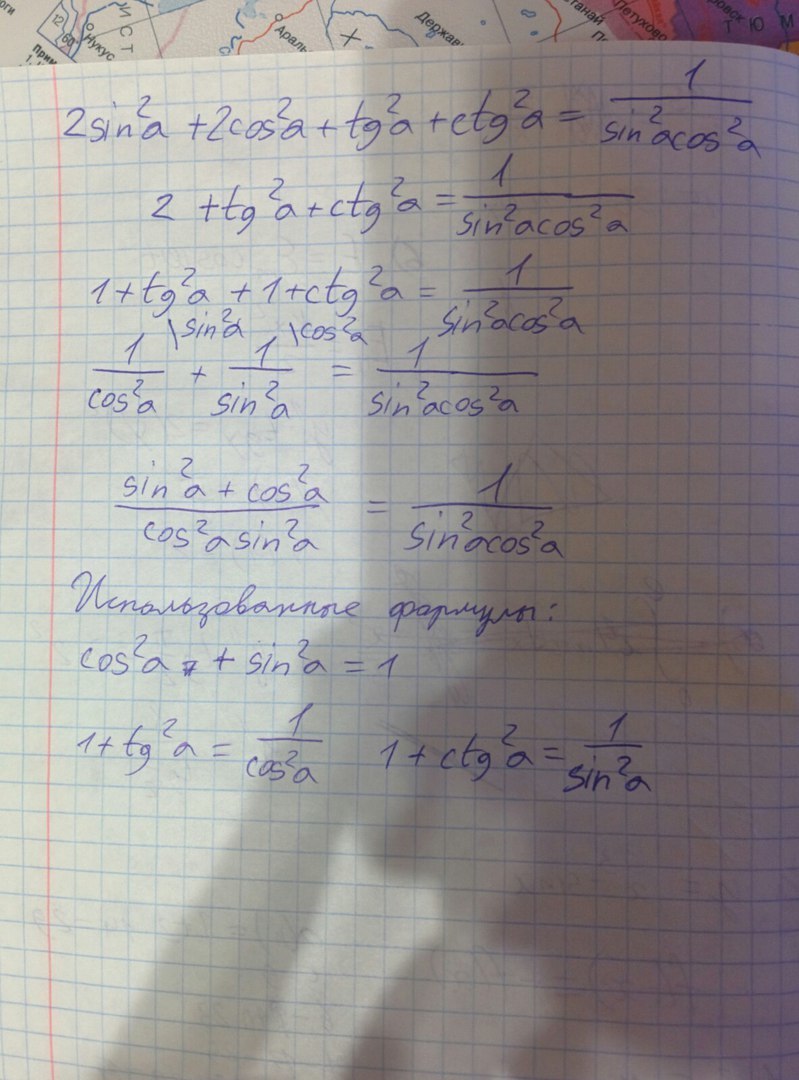 оги
12
60
Прим
1.
Нукус
ИСТ
Араль
Держав
станай
Петухово
ровск
ТЮМ
2sin²a + 2cos²a + tg²a + ctg²a = 1/(sin²acos²a)
2 + tg²a + ctg²a = 1/(sin²acos²a)
1 + tg²a + 1 + ctg²a = 1/(sin²acos²a)
\sin²a \cos²a
1/cos²a + 1/sin²a = 1/(sin²acos²a)
(sin²a + cos²a)/(cos²a sin²a) = 1/(sin²acos²a)
Использованные формулы:
cos²a + sin²a = 1
1 + tg²a = 1/cos²a 1 + ctg²a = 1/sin²a